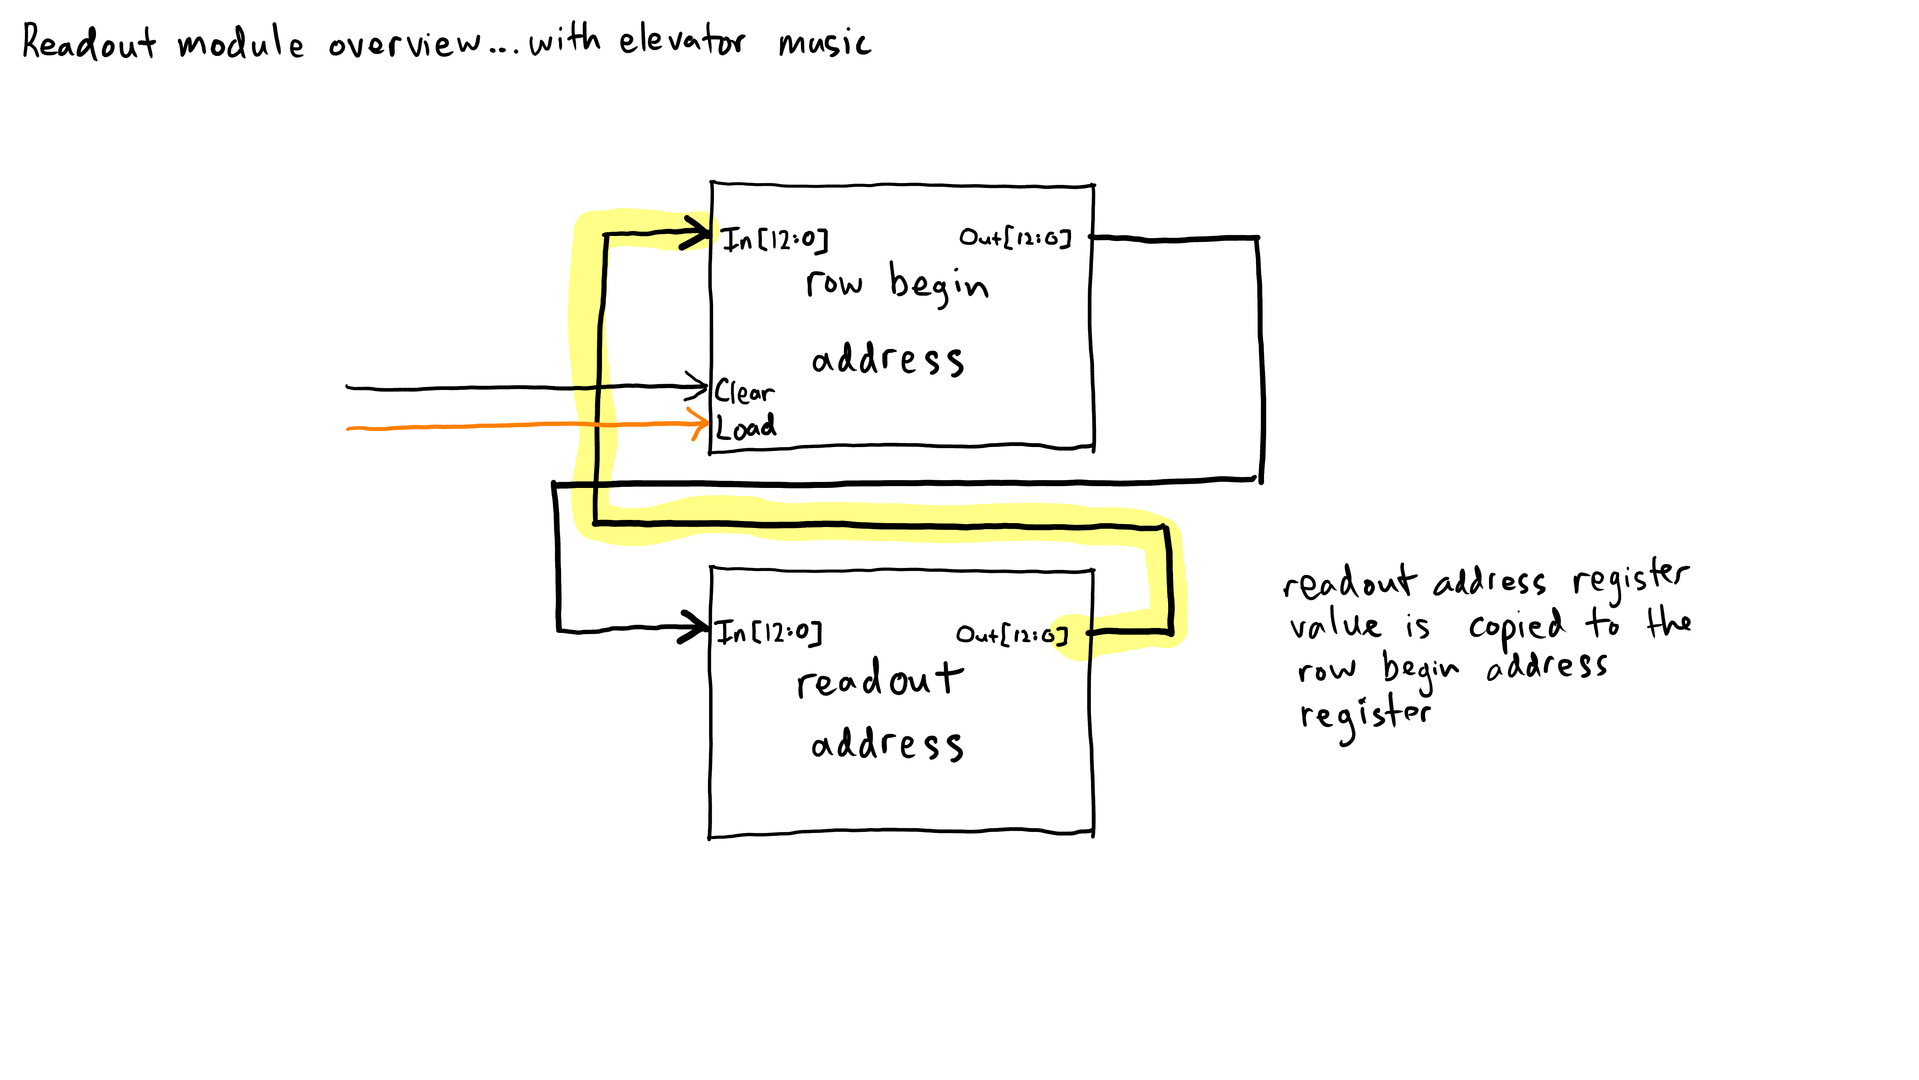 Readout module overview...with elevator music
In[12:0] Out[12:0]
row begin
address
Clear
Load
In[12:0] Out[12:0]
readout
address
readout address register
value is copied to the
row begin address
register